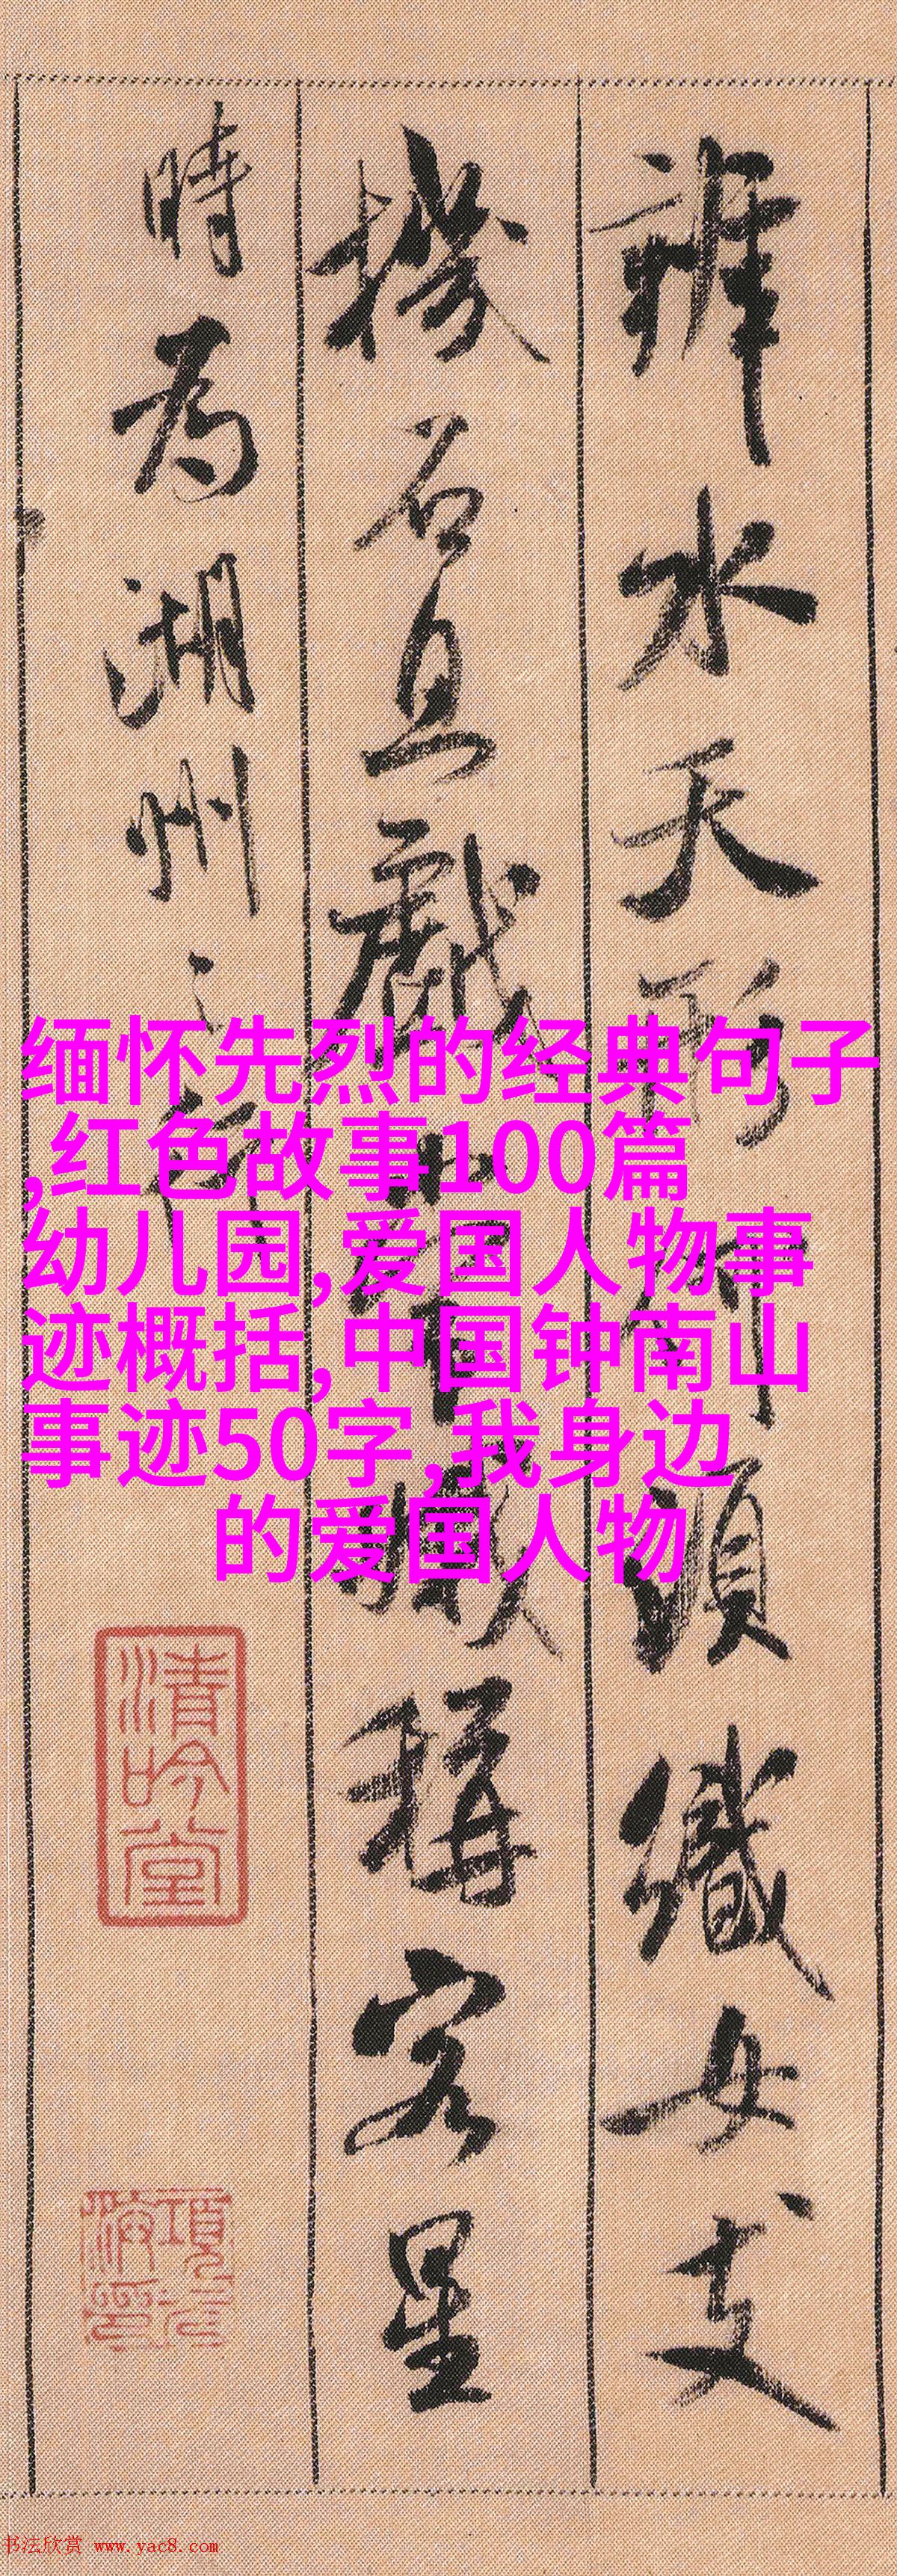 辨水天形何須織女支
機石且戲常娥稱客星
時為湖州之行
清吟堂
缅怀先烈的经典句子
,红色故事100篇
幼儿园,爱国人物事
迹概括,中国钟南山
事迹50字,我身边
的爱国人物
书法欣赏 www.yac8.com